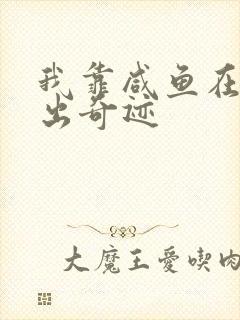 我靠咸鱼在
出奇迹
大魔王爱喫肉